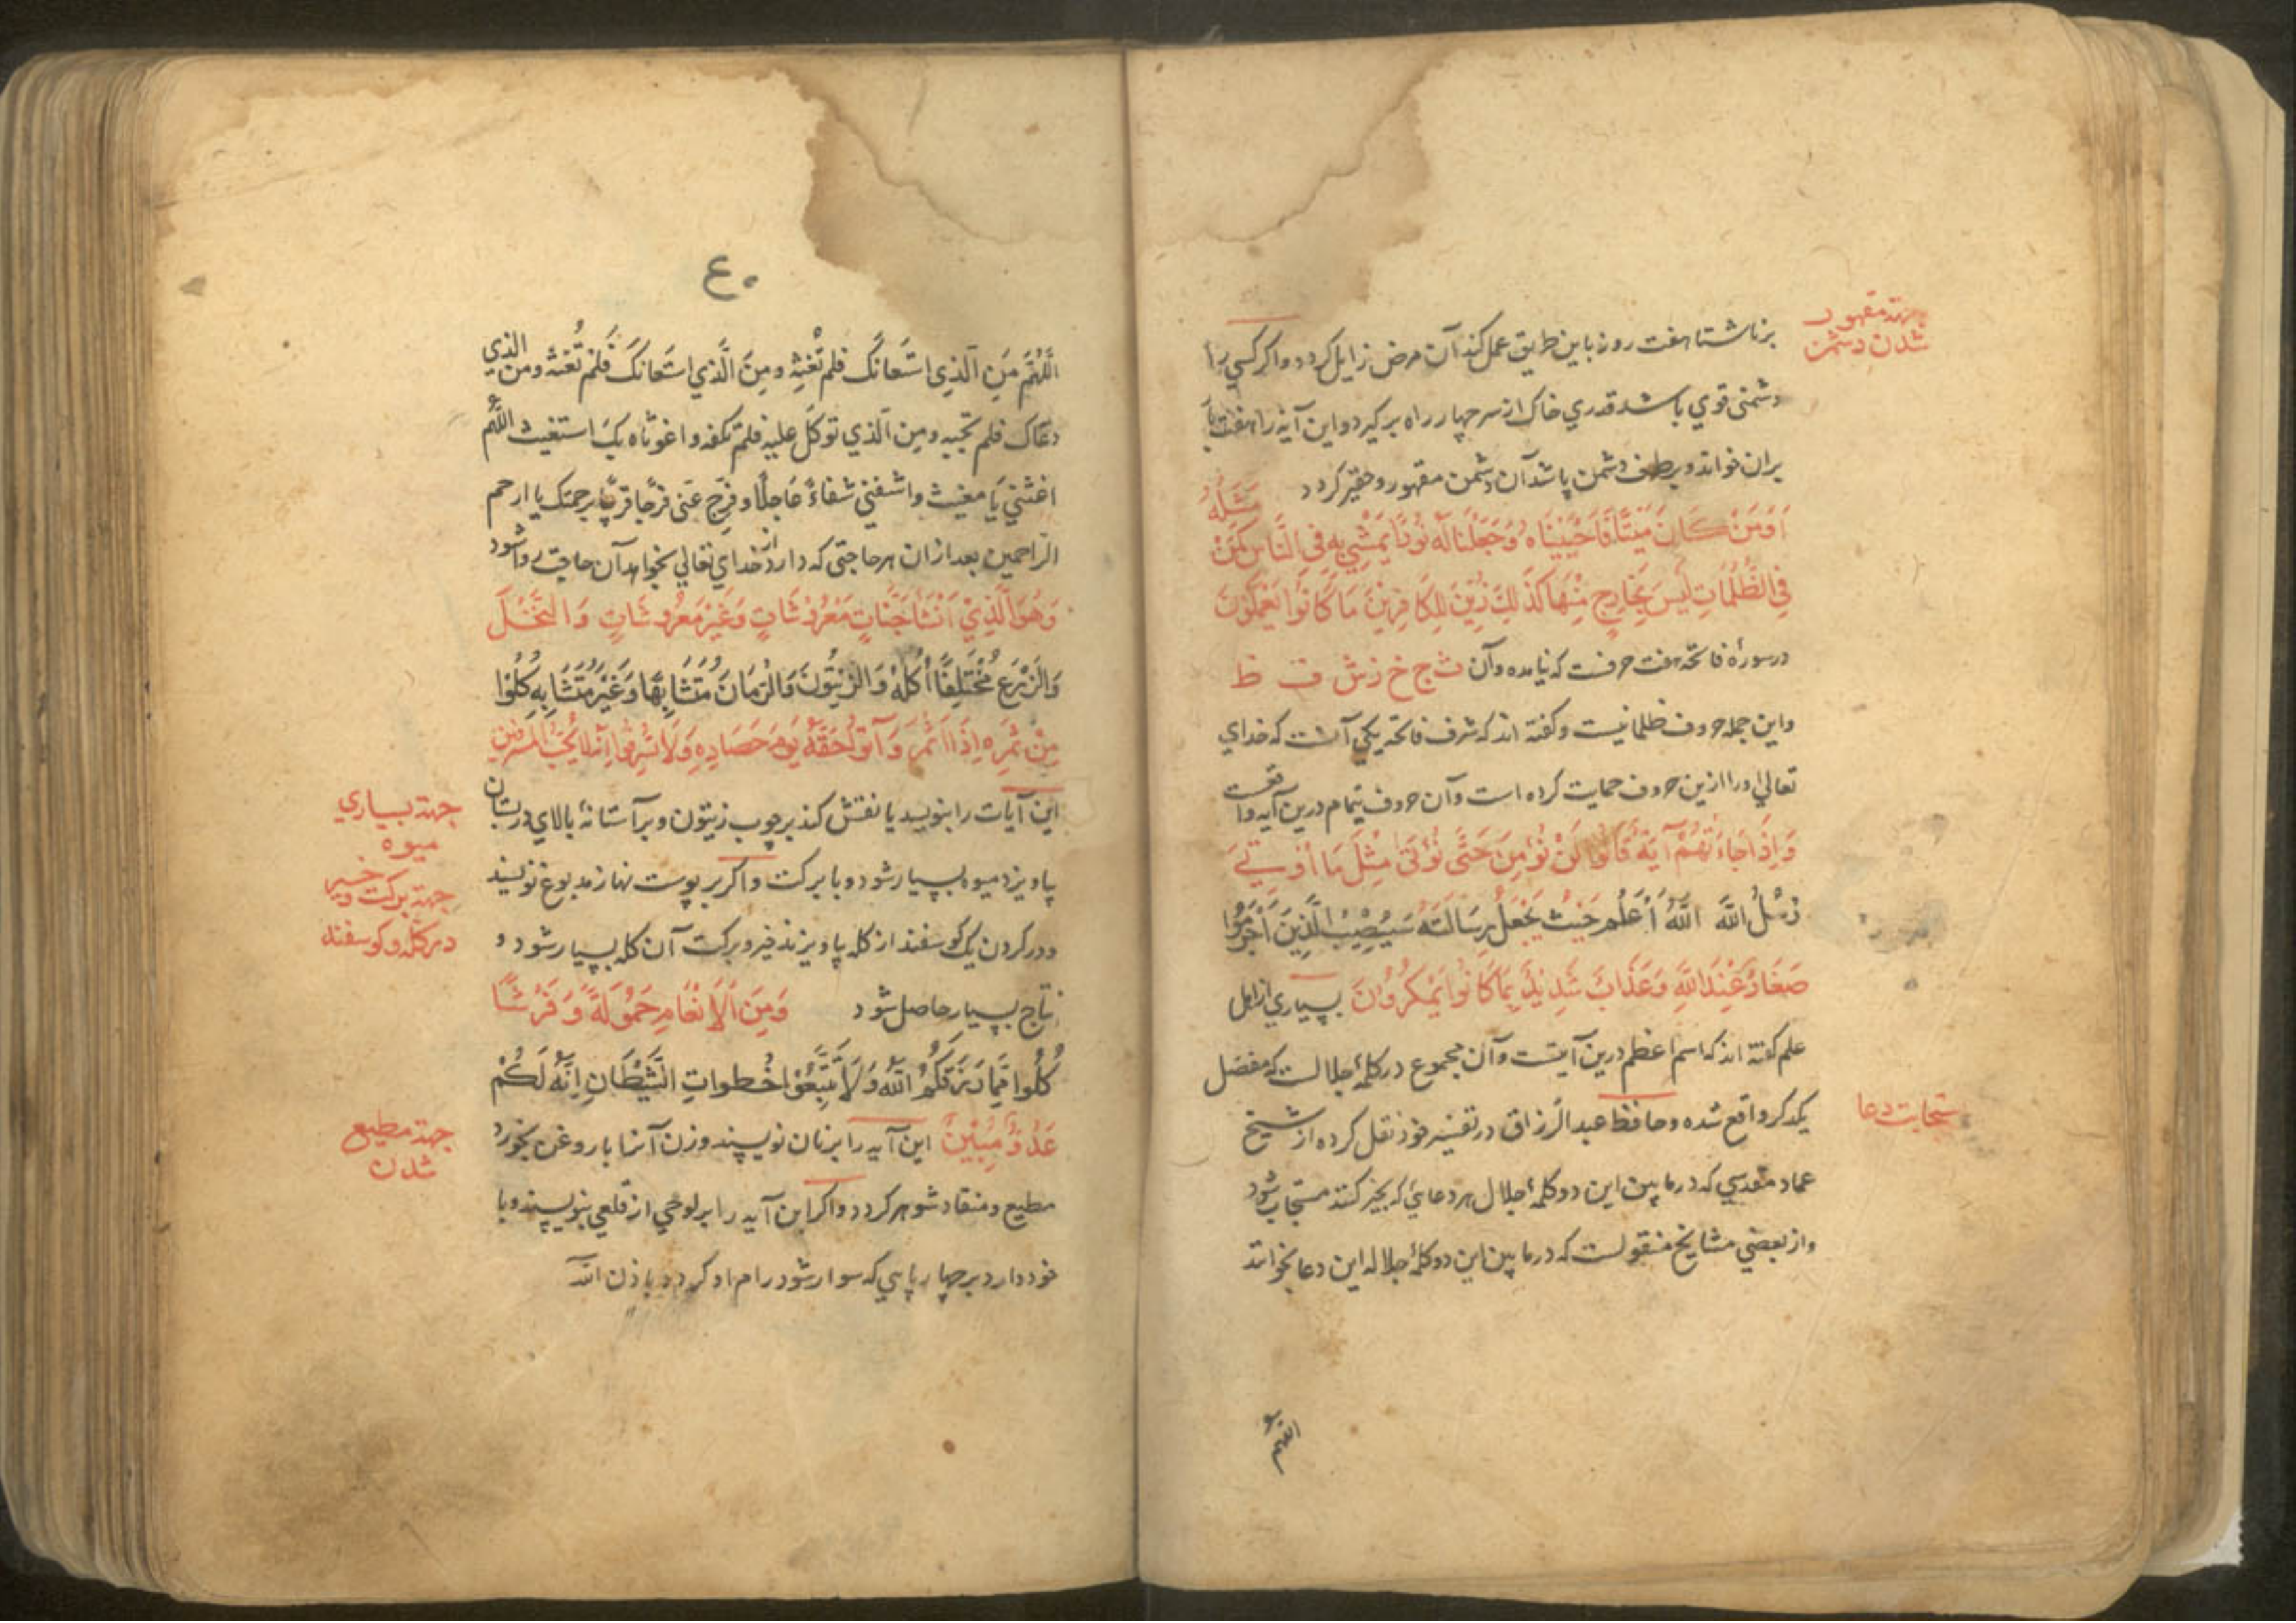 جهة مقهور
شدن دشمن
برناشتا هفت روز باین طریق عمل کند آن مرض زایل کردد واکر کسی را
دشمنی قوي باشد قدري خاک از سر چهار راه برگیرد و این آیة را هفت بار
بران خواند و بر طرف دشمن پاشد آن دشمن مقهور و حقیر کردد
اَوَمَنْ كَانَ مَيْتًا فَاَحْيَيْنَاهُ وَجَعَلْنَا لَهُ نُورًا يَمْشِي بِهِ فِي النَّاسِ كَمَنْ مَثَلُهُ
فِي الظُّلُمَاتِ لَيْسَ بِخَارِجٍ مِنْهَا كَذَلِكَ زُيِّنَ لِلْكَافِرِينَ مَا كَانُوا يَعْمَلُونَ
در سورۀ فاتحه هفت حرفست که نیامده و آن ث ج خ ز ش ف ظ
واین جمله حروف ظلمانیست و کفته اند که شرف فاتحه یکی آنست که خدای
تعالی اورا ازین حروف حمایت کرده است و آن حروف بتمام درین آیه واقعست
وَاِذَا جَاءَتْهُمْ آيَةٌ قَالُوا لَنْ نُؤْمِنَ حَتَّى نُؤْتَى مِثْلَ مَا أُوتِيَ
رُسُلُ اللَّهِ اللَّهُ أَعْلَمُ حَيْثُ يَجْعَلُ رِسَالَتَهُ سَيُصِيبُ الَّذِينَ أَجْرَمُوا
صَغَارٌ عِنْدَ اللَّهِ وَعَذَابٌ شَدِيدٌ بِمَا كَانُوا يَمْكُرُونَ بسیاري از اهل
علم کفته اند که اسم اعظم درین آیتست و آن مجموع در کلمۀ جلالست که مفصل
یکدکر واقع شده و حافظ عبد الرزاق در تفسیر خود نقل کرده از شیخ
ستجابت دعا
عماد مقدسی که در مابین این دو کلمۀ اجلال هر دعایی که بخیر کنند مستجاب شود
و از بعضی مشایخ منقولست که در مابین این دو کلمۀ جلاله این دعا بخوانند
اللهم
ع۰
اللَّهُمَّ مَنِ الَّذِي اسْتَعَانَكَ فلم تُغِثْهُ ومِنَ الَّذِي اسْتَعَانَكَ فَلَمْ تُغِثْهُ ومن الذي
دعاك فلم تجبه ومن الذي توكل عليه فلم تكفه واغوثاه بك استغيث اللهم
اغثني يا مغيث واشفني شفاءً عاجلًا وفرج عني فرجًا قريبًا برحمتك يا ارحم
الراحمين بعد ازان هر حاجتی که دارد از خدای تعالی بخواهد آن حاجت روا شود
وَهُوَ الَّذِي أَنْشَأَ جَنَّاتٍ مَعْرُوشَاتٍ وَغَيْرَ مَعْرُوشَاتٍ وَالنَّخْلَ
وَالزَّرْعَ مُخْتَلِفًا أُكُلُهُ وَالزَّيْتُونَ وَالرُّمَّانَ مُتَشَابِهًا وَغَيْرَ مُتَشَابِهٍ كُلُوا
مِنْ ثَمَرِهِ إِذَا أَثْمَرَ وَآتُوا حَقَّهُ يَوْمَ حَصَادِهِ وَلَا تُسْرِفُوا اِنَّهُ لَا يُحِبُّ الْمُسْرِفِينَ
این آیات را بنویسد یا نقش کند بر چوب زیتون و بر آستانۀ بالای در بستان
جهة بسیاري
میوه
پاویزد میوه بسیار شود و با برکت واکر بر پوست نهاز مدبوغ نویسند
جهة برکت و خیر
در کله و کوسفند
و در کردن یک کوسفند از کله پاویزند خیر و برکت آن کله بسیار شود و
نتاج بسیار حاصل شود وَمِنَ الْأَنْعَامِ حَمُولَةً وَفَرْشًا
كُلُوا مِمَّا رَزَقَكُمُ اللَّهُ وَلَا تَتَّبِعُوا خُطُوَاتِ الشَّيْطَانِ إِنَّهُ لَكُمْ
عَدُوٌّ مُبِينٌ این آیه را بر نان نویسند و زن آنرا با روغن بخورد
جهة مطیع
شدن
مطیع و منقاد شوهر کردد واکر این آیه را بر لوحی از قلعی بنویسند و با
خود دارد بر چهارپایی که سوار شود رام او کردد باذن الله